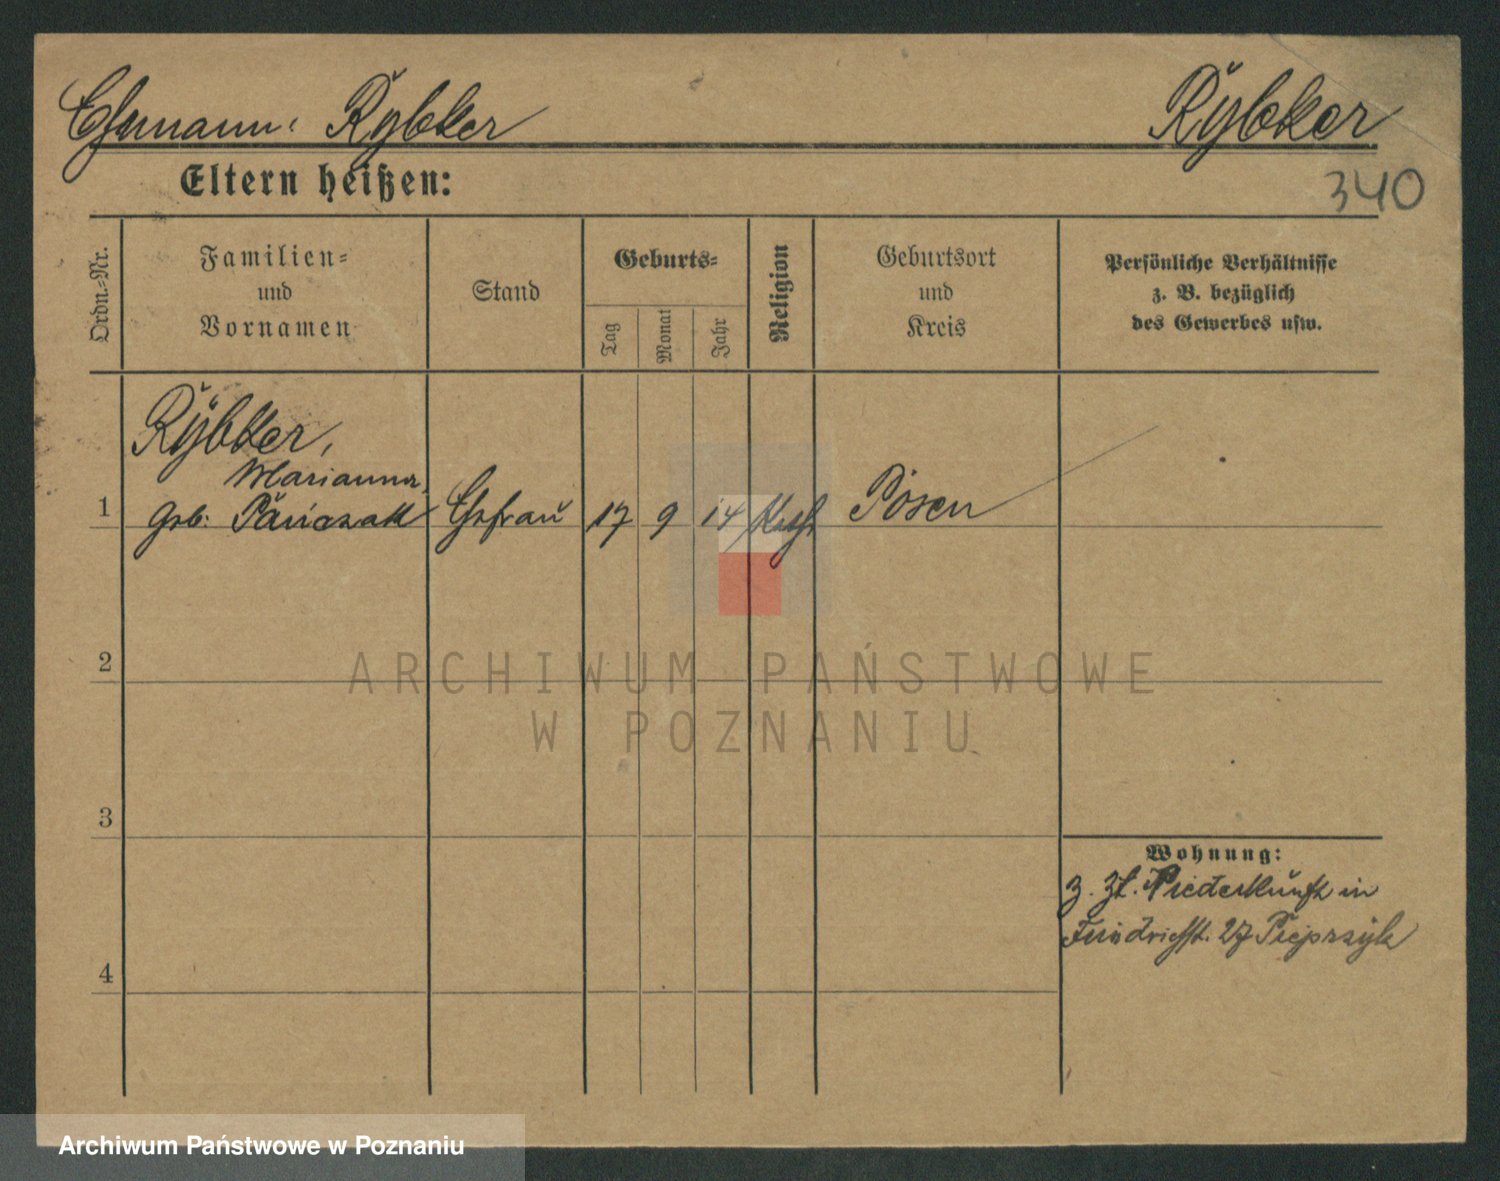 Ehemann: Rybker Rybker
Eltern heißen:
340
Ordn.-Nr.
Familien-
und
Vornamen
Stand
Geburts-
Tag
Monat
Jahr
Religion
Geburtsort
und
Kreis
Persönliche Verhältnisse
z. B. bezüglich
des Gewerbes usw.
Rybker,
Marianna,
1 geb. Ehefrau 17 9 14 Kath Posen
2
3
4
Wohnung:
z. Zt. Niederkunft in
Friedrichstr. 27
ARCHIWUM PAŃSTWOWE
W POZNANIU
Archiwum Państwowe w Poznaniu